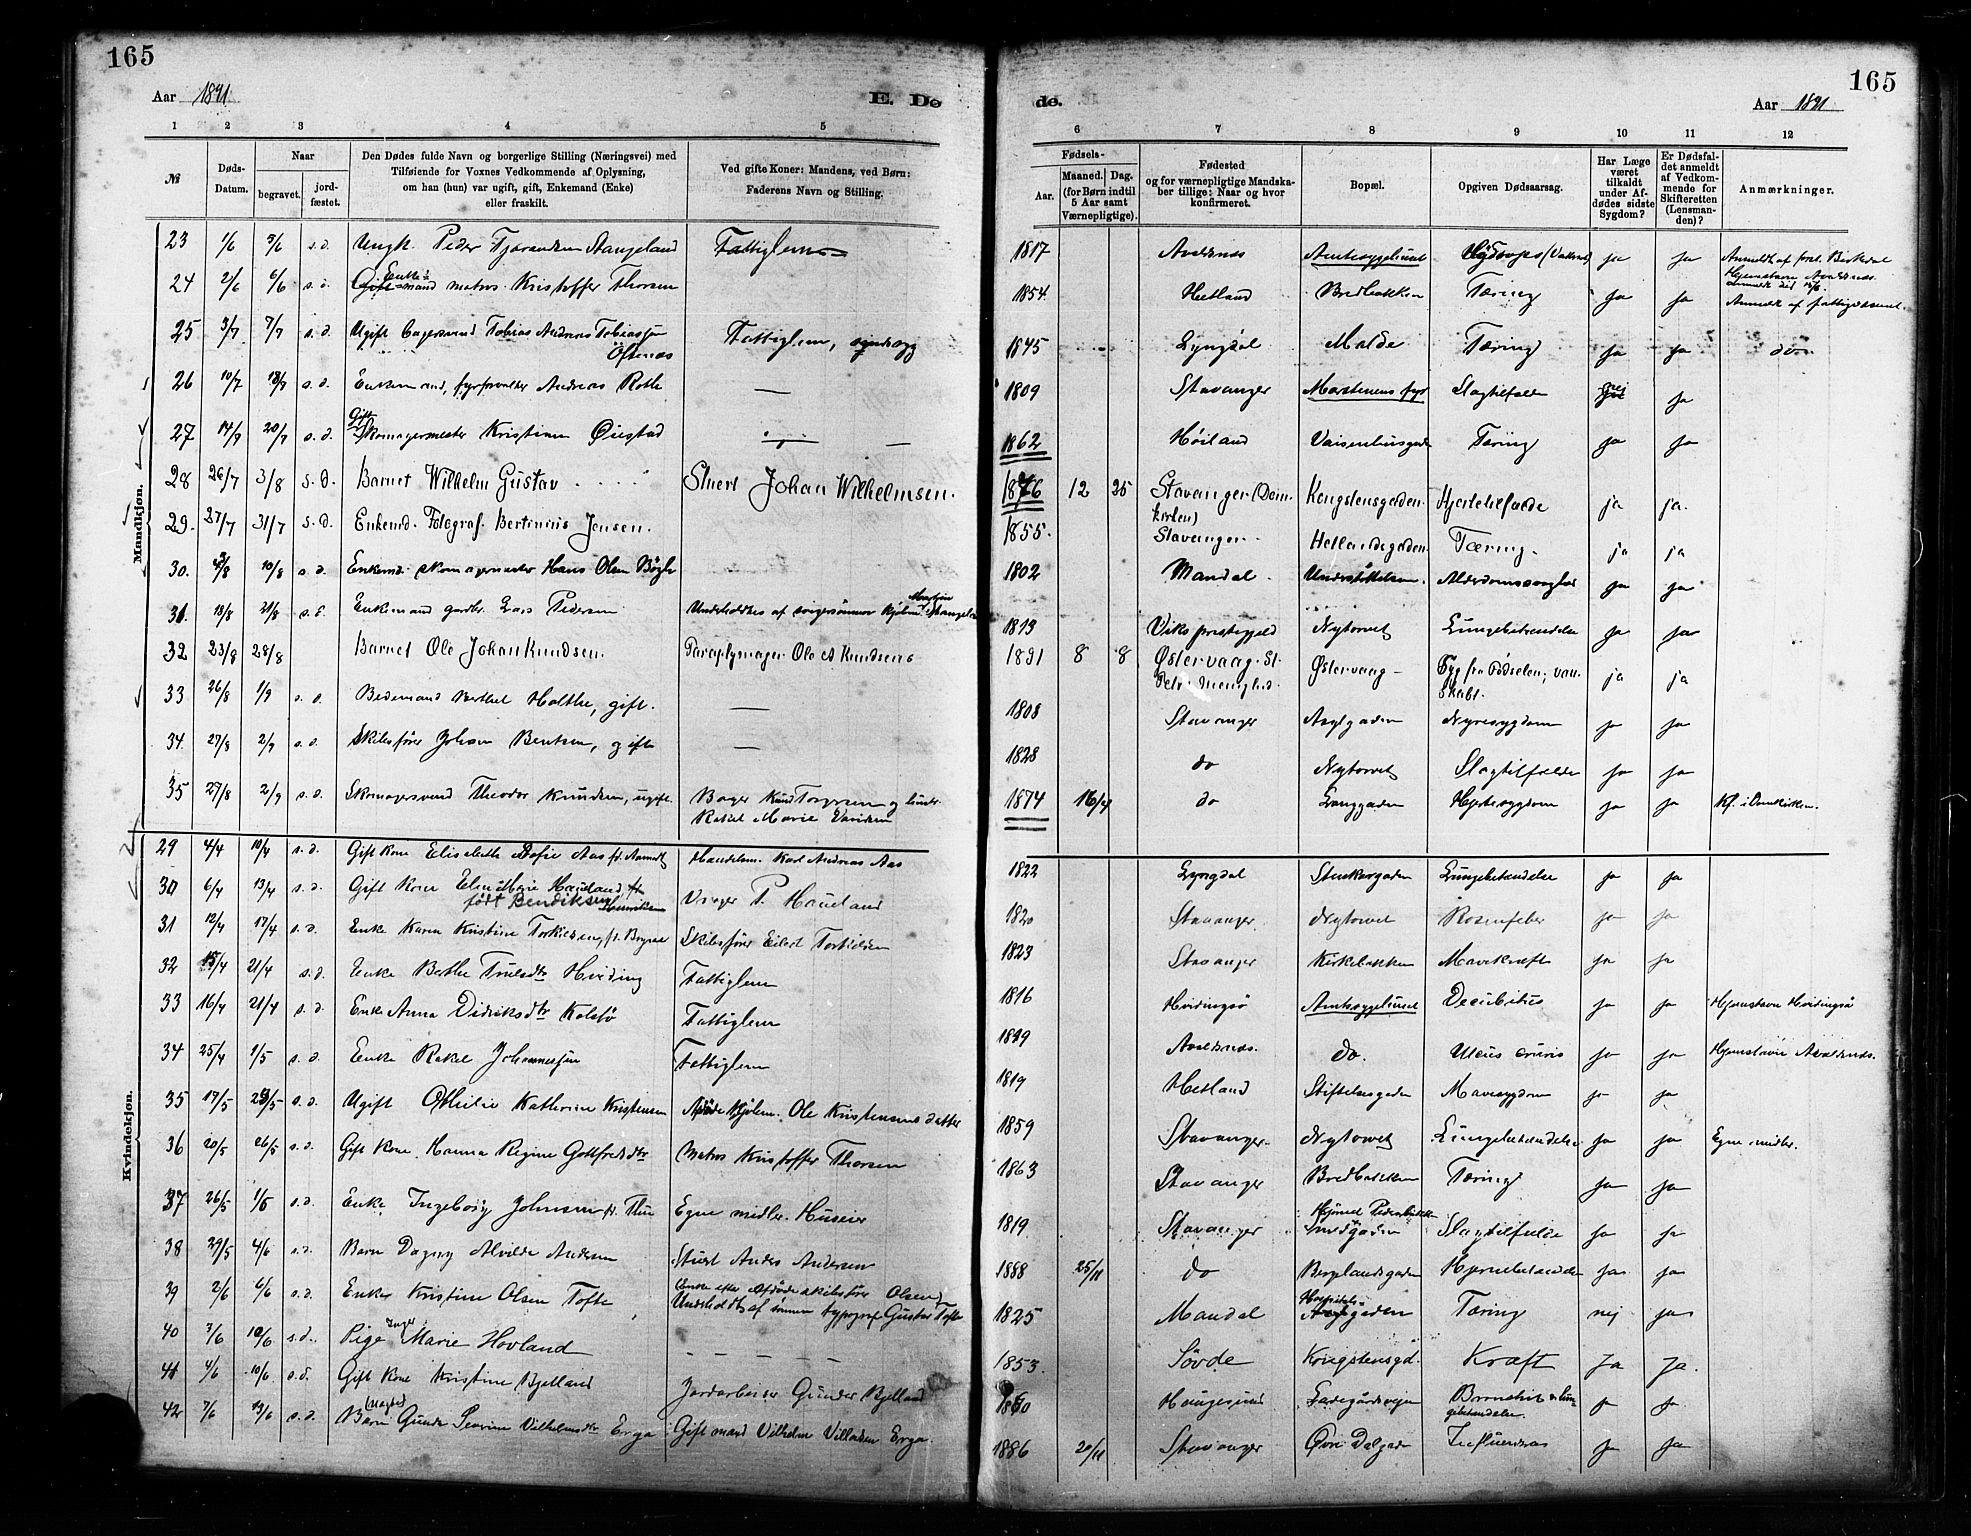 165
Aar 1891
E. Dø
1 2 3 4 5
№
Døds-Datum.
Naar
begravet.
jord-fæstet.
Den Dødes fulde Navn og borgerlige Stilling (Næringsvei) med
Tilføiende for Voxnes Vedkommende af Oplysning,
om han (hun) var ugift, gift, Enkemand (Enke)
eller fraskilt.
Ved gifte Koner: Mandens, ved Børn:
Faderens Navn og Stilling.
Mandkjøn.
23 1/6 s.d. Ungk. Peder Stangeland Fattiglem
24 2/6 6/6 s.d. Enkemand matros Kristoffer Thorsen
25 3/7 7/7 s.d. Ugift Tobias Andreas Tobiassen Fattiglem,
26 10/7 18/7 s.d. Enkemand, Andreas Rothe —
27 20/7 s.d. Gift Skomagermester Kristian Øiestad
28 26/7 3/8 s.d. Barnet Wilhelm Gustav Stuert Johan Wilhelmsen.
29. 27/7 31/7 s.d. Enkemd. Fotograf. Bertinius Jensen.
30. 10/8 s.d. Enkemd. skomagermester Hans Olsen
31. 18/8 21/8 s.d. Enkemand Lars Pedersen Underholdtes af svigersønnen
32 23/8 28/8 Barnet Ole Johan Knudsen. Paraplymager Ole A Knudsens
33 26/8 1/9 s.d. Bedemand Berthel Holthe, gift. —
34. 27/8 2/9 s.d. Skibsfører Johan Bentsen, gift —
35 27/8 2/9 s.d. Skomagersvend Theodor Knudsen, ugift. Bager Knud Torgersen og
Rakel Marie
Kvindekjøn.
29 4/4 10/4 s.d. Gift kone Elisabeth Sofie Aas Handelsm. Karl Andreas Aas
30 6/4 13/4 s.d. Gift Kone Haaland
født Bendiksen P. Haaland
31 12/4 17/4 s.d. Enke Karen Kristine Torkildsen, Skibsfører Eilert Torkildsen
32 15/4 21/4 s.d. Enke Berthe Truelsdtr Hviding Fattiglem
33 16/4 21/4 s.d. Enke Anna Didriksdtr Kolstø Fattiglem
34 25/4 1/5 s.d. Enke Rakel Johannessen Fattiglem
35 17/5 23/5 s.d. Ugift Othilie Kathrine Kristensen Ole Kristensens datter
36 20/5 26/5 s.d. Gift Kone. Hanna Regine Gottfredsdtr Matros Kristoffer Thorsen
37 26/5 1/6 s.d. Enke Ingeborg Johnsen Egne midler. Huseier
38 29/5 4/6 s.d. Barn Dagny Alvilde Andersen Stuert Anders Andersen
39 2/6 6/6 s.d. Enke Kristine Olsen Tofte Enke efter Afdøde skibsfører Olsen
Underholdt af sønnen typograf Gustav Tofte
40 3/6 10/6 s.d. Pige Inger Marie Hovland – – – –
41 4/6 10/6 s.d. Gift Kone Kristine Bjelland Jordarbeider Gunder Bjelland
42 7/6 13/6 s.d. Barn Severine Vilhelmsdtr Erga Gift mand Vilhelm Erga.
165
de.
Aar 1891
6 7 8 9 10 11 12
Fødsels-
Aar.
Maaned.
Dag.
(for Børn indtil
5 Aar samt
Værnepligtige).
Fødested
og for værnepligtige Mandska-
ber tillige: Naar og hvor
konfirmeret.
Bopæl.
Opgiven Dødsaarsag.
Har Læge
været
tilkaldt
under Af-
dødes sidste
Sygdom?
Er Dødsfal-
det anmeldt
af Vedkom-
mende for
Skifteretten
(Lensman-
den)?
Anmærkninger.
1817 Avaldsnæs Amtssygehuset ja ja
Hjemstavn Avaldsnes
1854. Hetland Bredbakken Tæring ja ja Anmeldt af fattigvæsenet.
1845 Lyngdal Malde Tæring ja ja do
1809 Stavanger Slagtilfælde nei ja
1862 Høiland Vaisenhusgaden Tæring ja ja
1876 12 25 Stavanger (Dom-
kirken) Kongstensgaden Hjertetilfælde ja ja.
1855. Stavanger Hetlandsgaden Tæring. ja ja
1802 Mandal. Understøttelsen. Alderdomssvaghed ja ja
1813 Viks prestegjeld Nytorvet Lungebetændelse ja ja
1891 8 8 Østervaag. St.
Petri Menighed. Østervaag – Syg fra Fødselen; van-
skabt. ja ja
1808 Stavanger Asylgaden Nyresygdom ja ja
1828 do Nytorvet Slagtilfælde ja ja
1874 16/4 do Langgaden Hjertesygdom ja ja Kf. i Domkirken.
1822 Lyngdal Stenkargaden Lungebetændelse ja ja
1820 Stavanger Nytorvet Rosenfeber ja ja
1823 Stavanger Kirkebakken Mavekræft ja ja
1816 Hvidingsø Amtssygehuset Decubitus ja ja Hjemstavn Hvidingsø
Avaldsnæs. do. Ulcus cruris ja ja Hjemstavn Avaldsnes.
1819 Hetland Stiftelsesgaden Mavesygdom ja ja
1859 Stavanger. Nytorvet Lungebetændelse ja ja Egne midler.
1863 Stavanger Bredbakken Tæring ja ja
1819 Stavanger Hjørnet Pedersbakken
Smedgaden Slagtilfælde ja ja
1888 25/11 do Bergelandsgaden Hjernebetændelse ja ja
1825 Mandal Hospitals-
gaden Tæring nej ja
1853. Søvde Kongstensgd. Kræft Ja Ja.
Haugesund Ladegårdsveien Bronchit og lun-
gebetændelse ja ja
1886 20/11 Stavanger Øvre Dalgade Influenzas ja ja